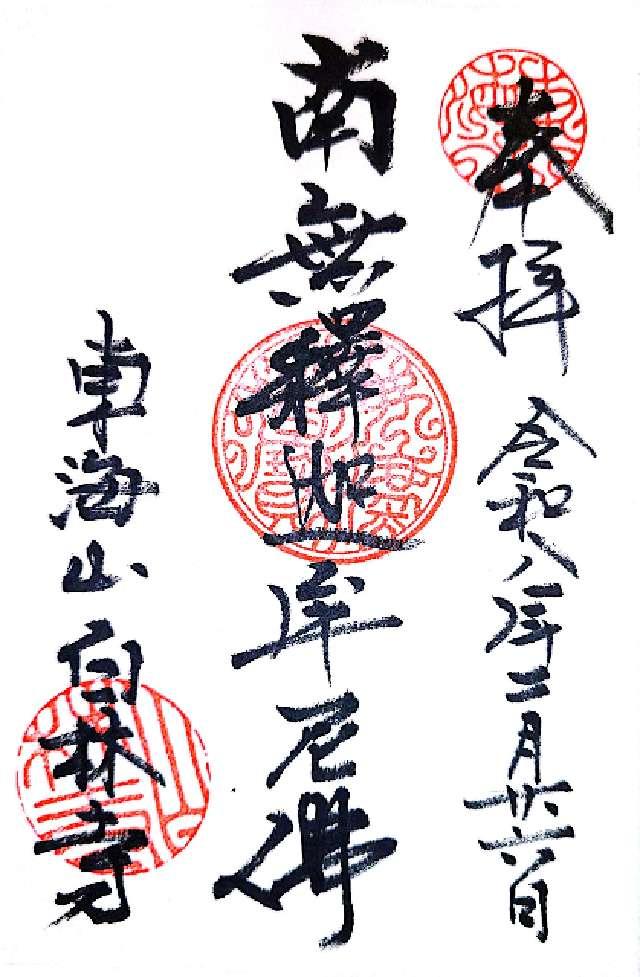 奉拝 令和八年二月廿六日
南無釋迦牟尼佛
東海山 白林寺